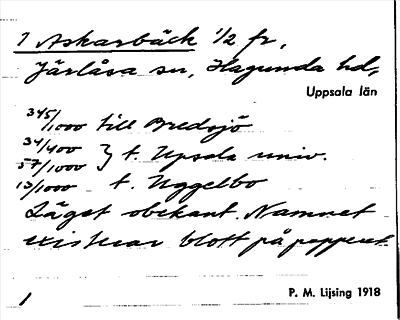 1 Askarbäck 1/2 fr,
Järlåsa sn, Hagunda hd,
Uppsala län
345/1000 till Bredsjö
34/400
57/1000 } t. Upsala univ.
13/1000 t. Uggelbo
Läget obekant. Namnet
existerar blott på papperet.
1
P. M. Lijsing 1918